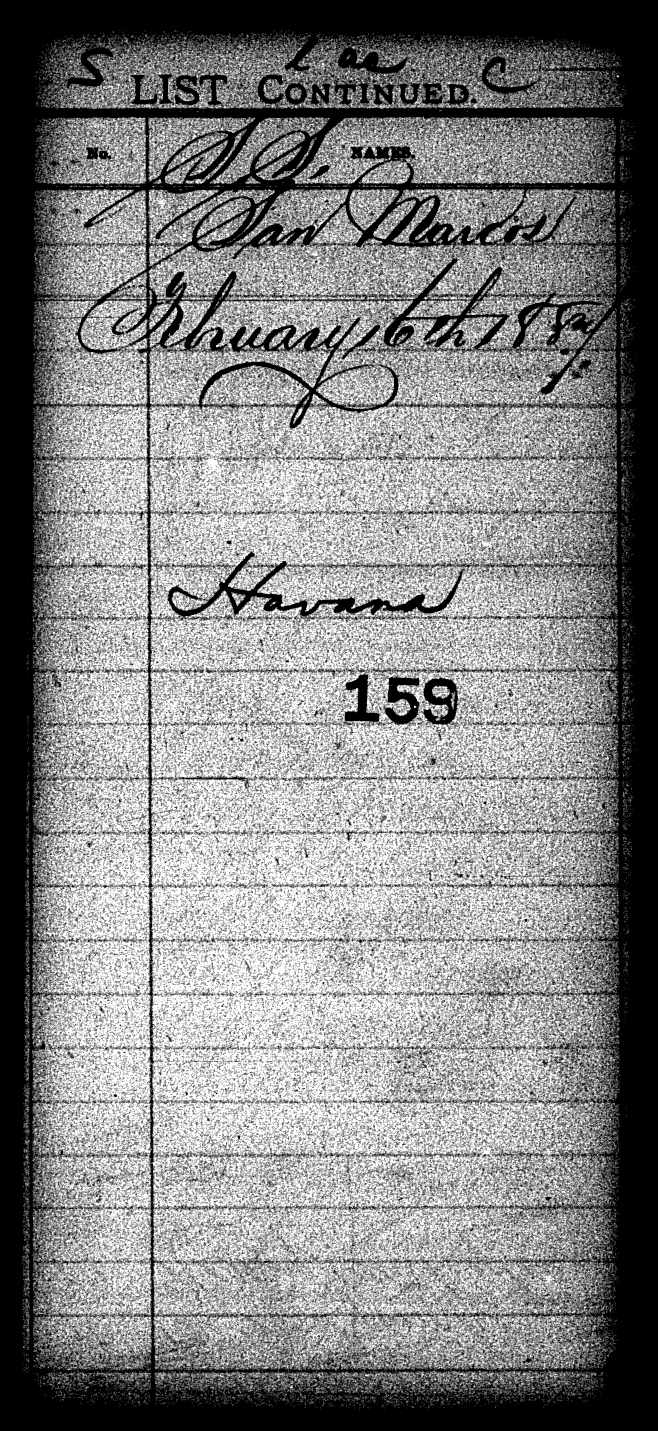 S C
LIST CONTINUED.
No. NAMES.
S. S.
San Marcos
February 6th
Havana
159